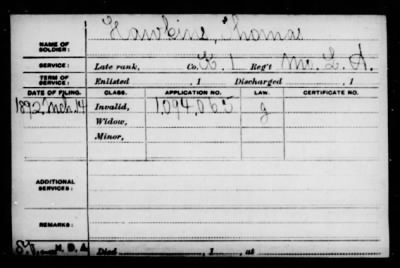 Hawkins, Thomas
NAME OF
SOLDIER:
SERVICE: Late rank, Co. K. 1 Reg't Mo. L. A.
TERM OF
SERVICE: Enlisted , 1 Discharged , 1
DATE OF FILING. CLASS. APPLICATION NO. LAW. CERTIFICATE NO.
1892 Mch. 14 Invalid, 1.094.065 g
Widow,
Minor,
ADDITIONAL
SERVICES:
REMARKS:
N. D. A. Died , 1 , at